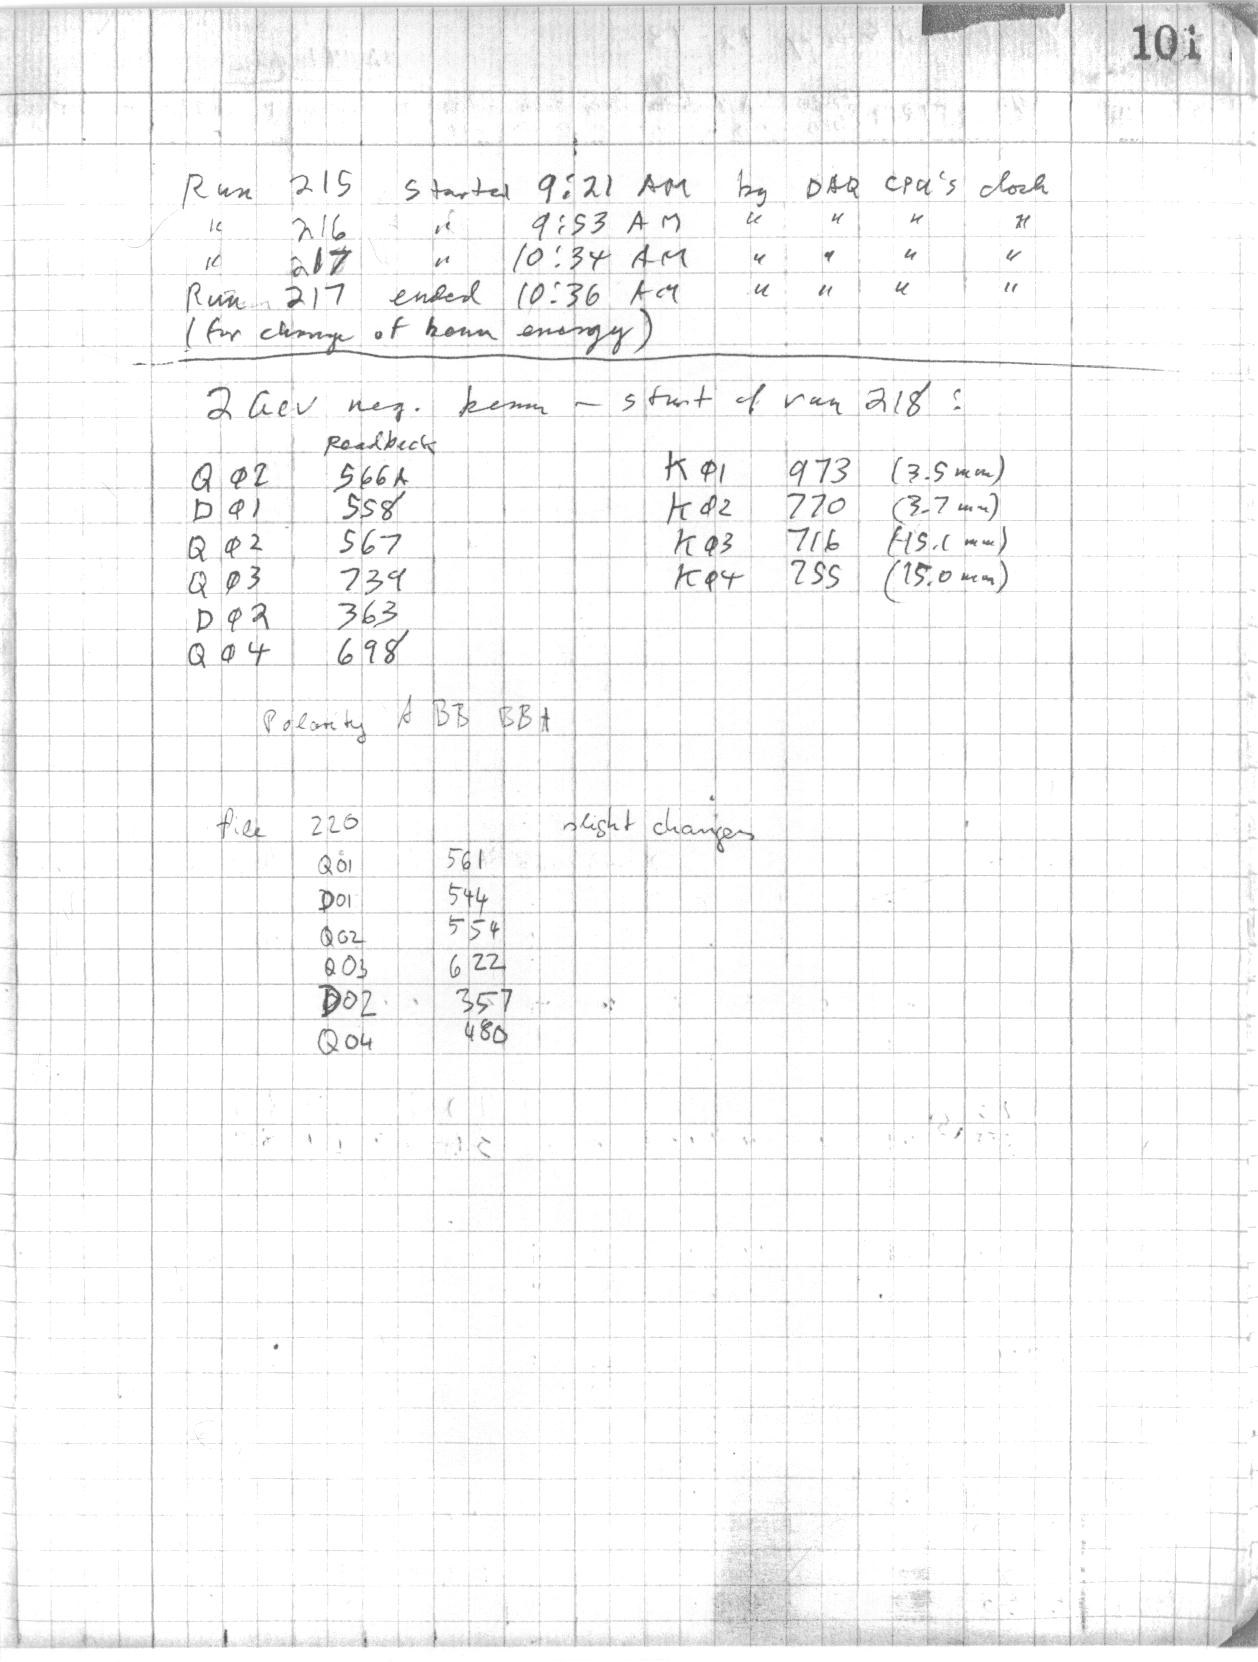 101
Run 215 started 9:21 AM by DAQ CPU's clock
" 216 " 9:53 AM " " " "
" 217 " 10:34 AM " " " "
Run 217 ended 10:36 AM " " " "
(for change of beam energy)
2 GeV neg. beam - start of run 218:
Readback
QØ2 566A KØ1 973 (3.5mm)
DØ1 558 KØ2 770 (3.7mm)
QØ2 567 KØ3 716 (15.1 mm)
QØ3 739 KØ4 755 (15.0mm)
DØ2 363
QØ4 698
Polarity A BB BBA
file 220 slight changes
Q01 561
D01 544
Q02 554
Q03 622
D02 357
Q04 480